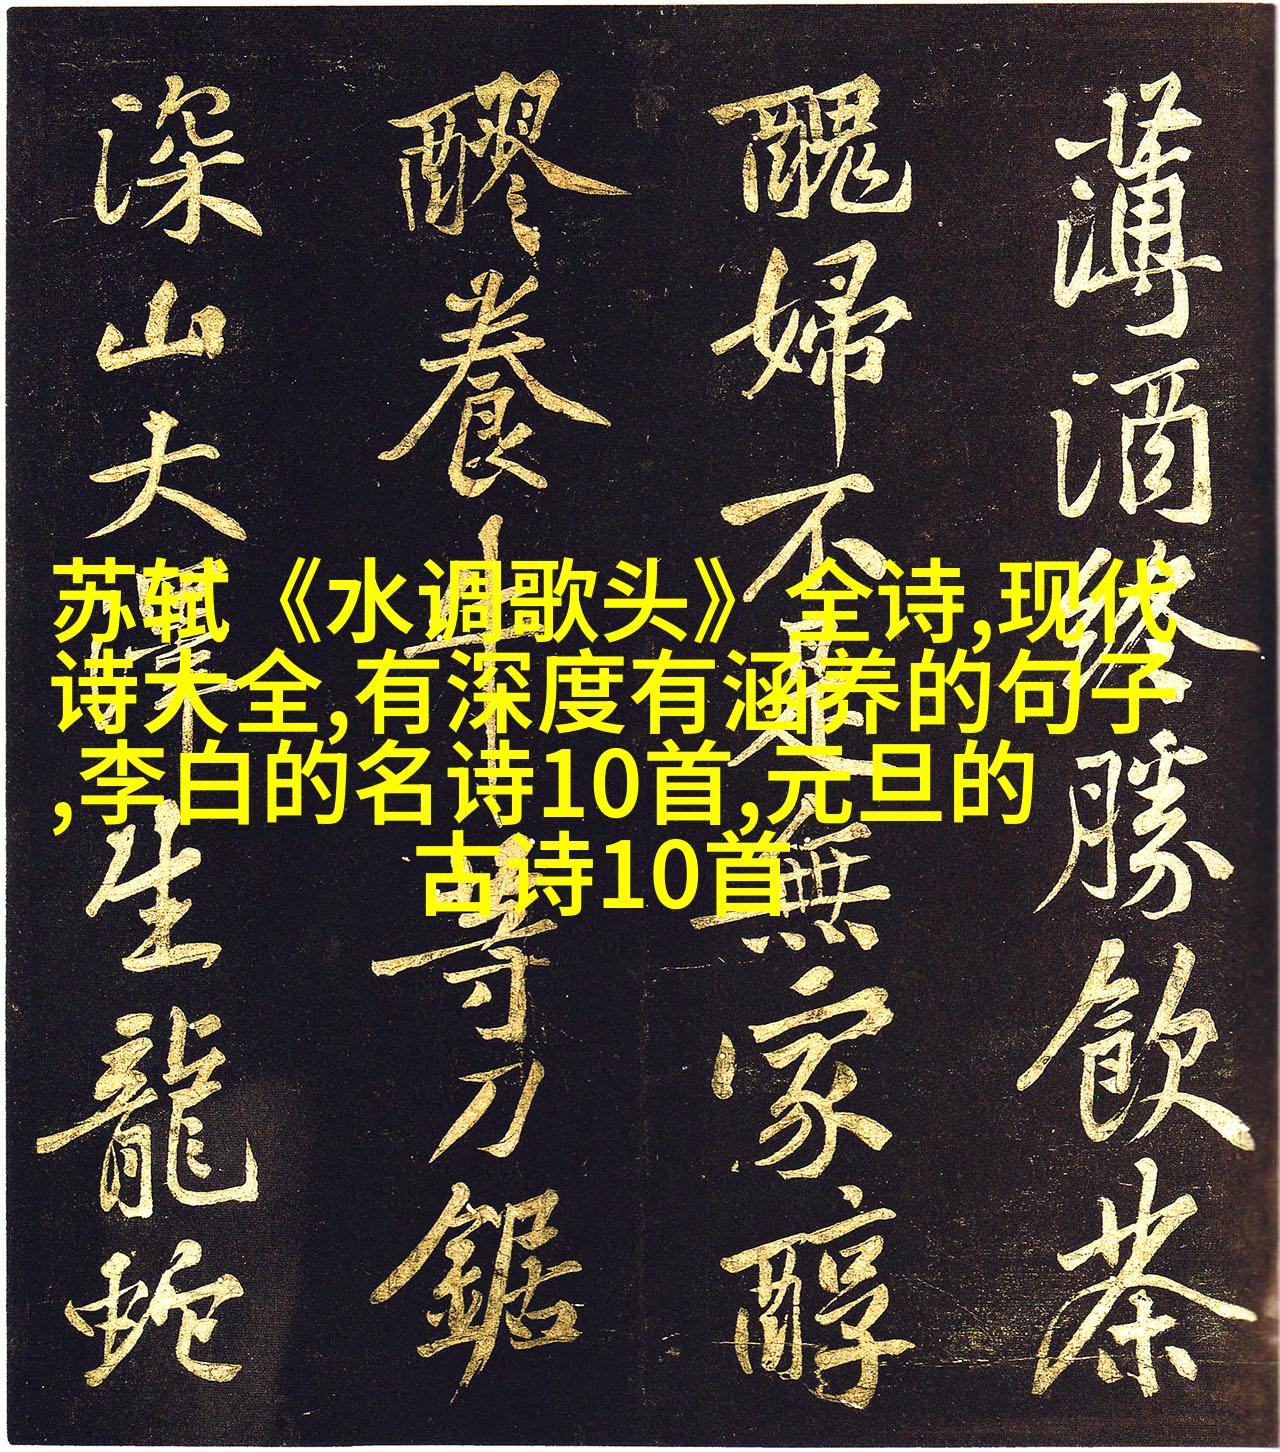 苏轼《水调歌头》全诗,现代
诗大全,有深度有涵养的句子
,李白的名诗10首,元旦的
古诗10首
薄酒終勝飲茶
醜婦不是無家醇
醪養牛等刀鋸
深山大澤生龍蛇